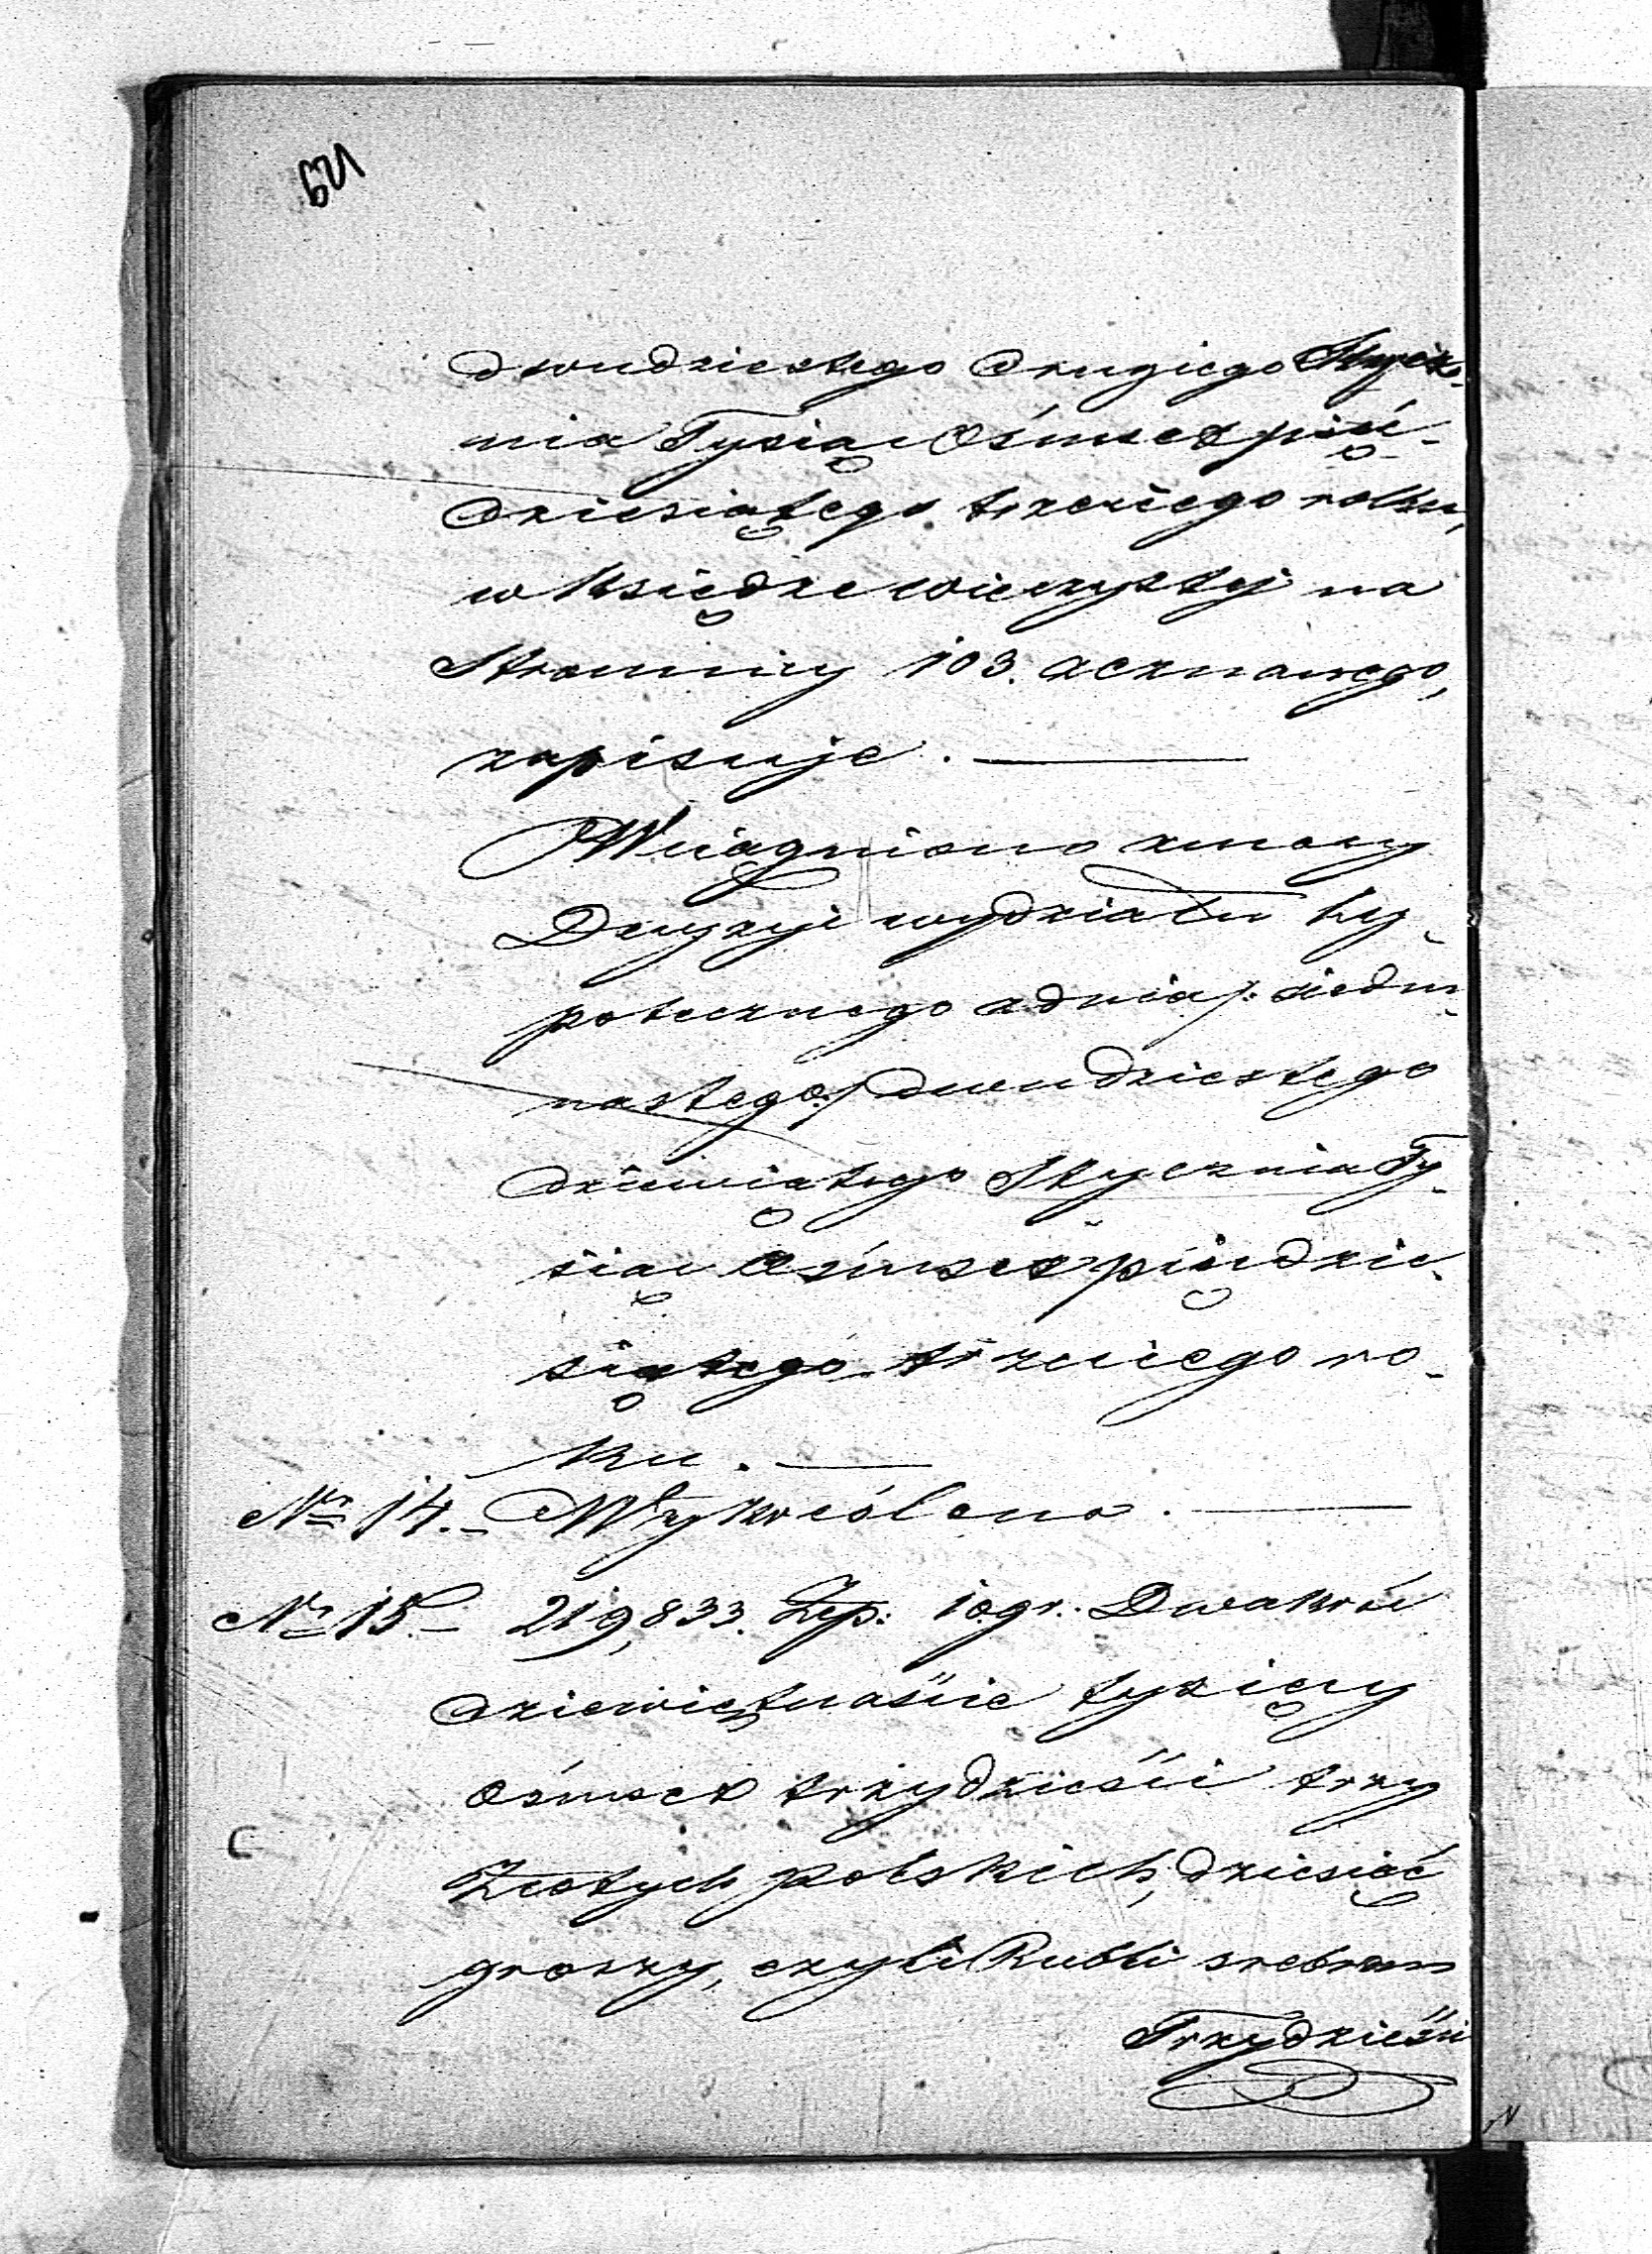 dwudziestego drugiego Stycz-
nia Tysiąc Ośmset pięć-
dziesiątego trzeciego roku,
w księdze wieczystej na
Stronnicy 103. zeznanego,
zapisuje. —
Wciągniono z mocy
Decyzyi wydziału hy-
potecznego z dnia /: siedm-
nastego :/ dwudziestego
dziewiątego Stycznia Ty-
siąc Ośmset pięćdzie-
siątego trzeciego ro-
ku. —
No 14. – Wykreślono. —
No 15. – 219,833. Złp: 10 gr. Dwakroć
dziewiętnaście tysięcy
ośmset trzydzieści trzy
Złotych polskich, dziesięć
groszy, czyli Rubli srebrem
Trzydzieści